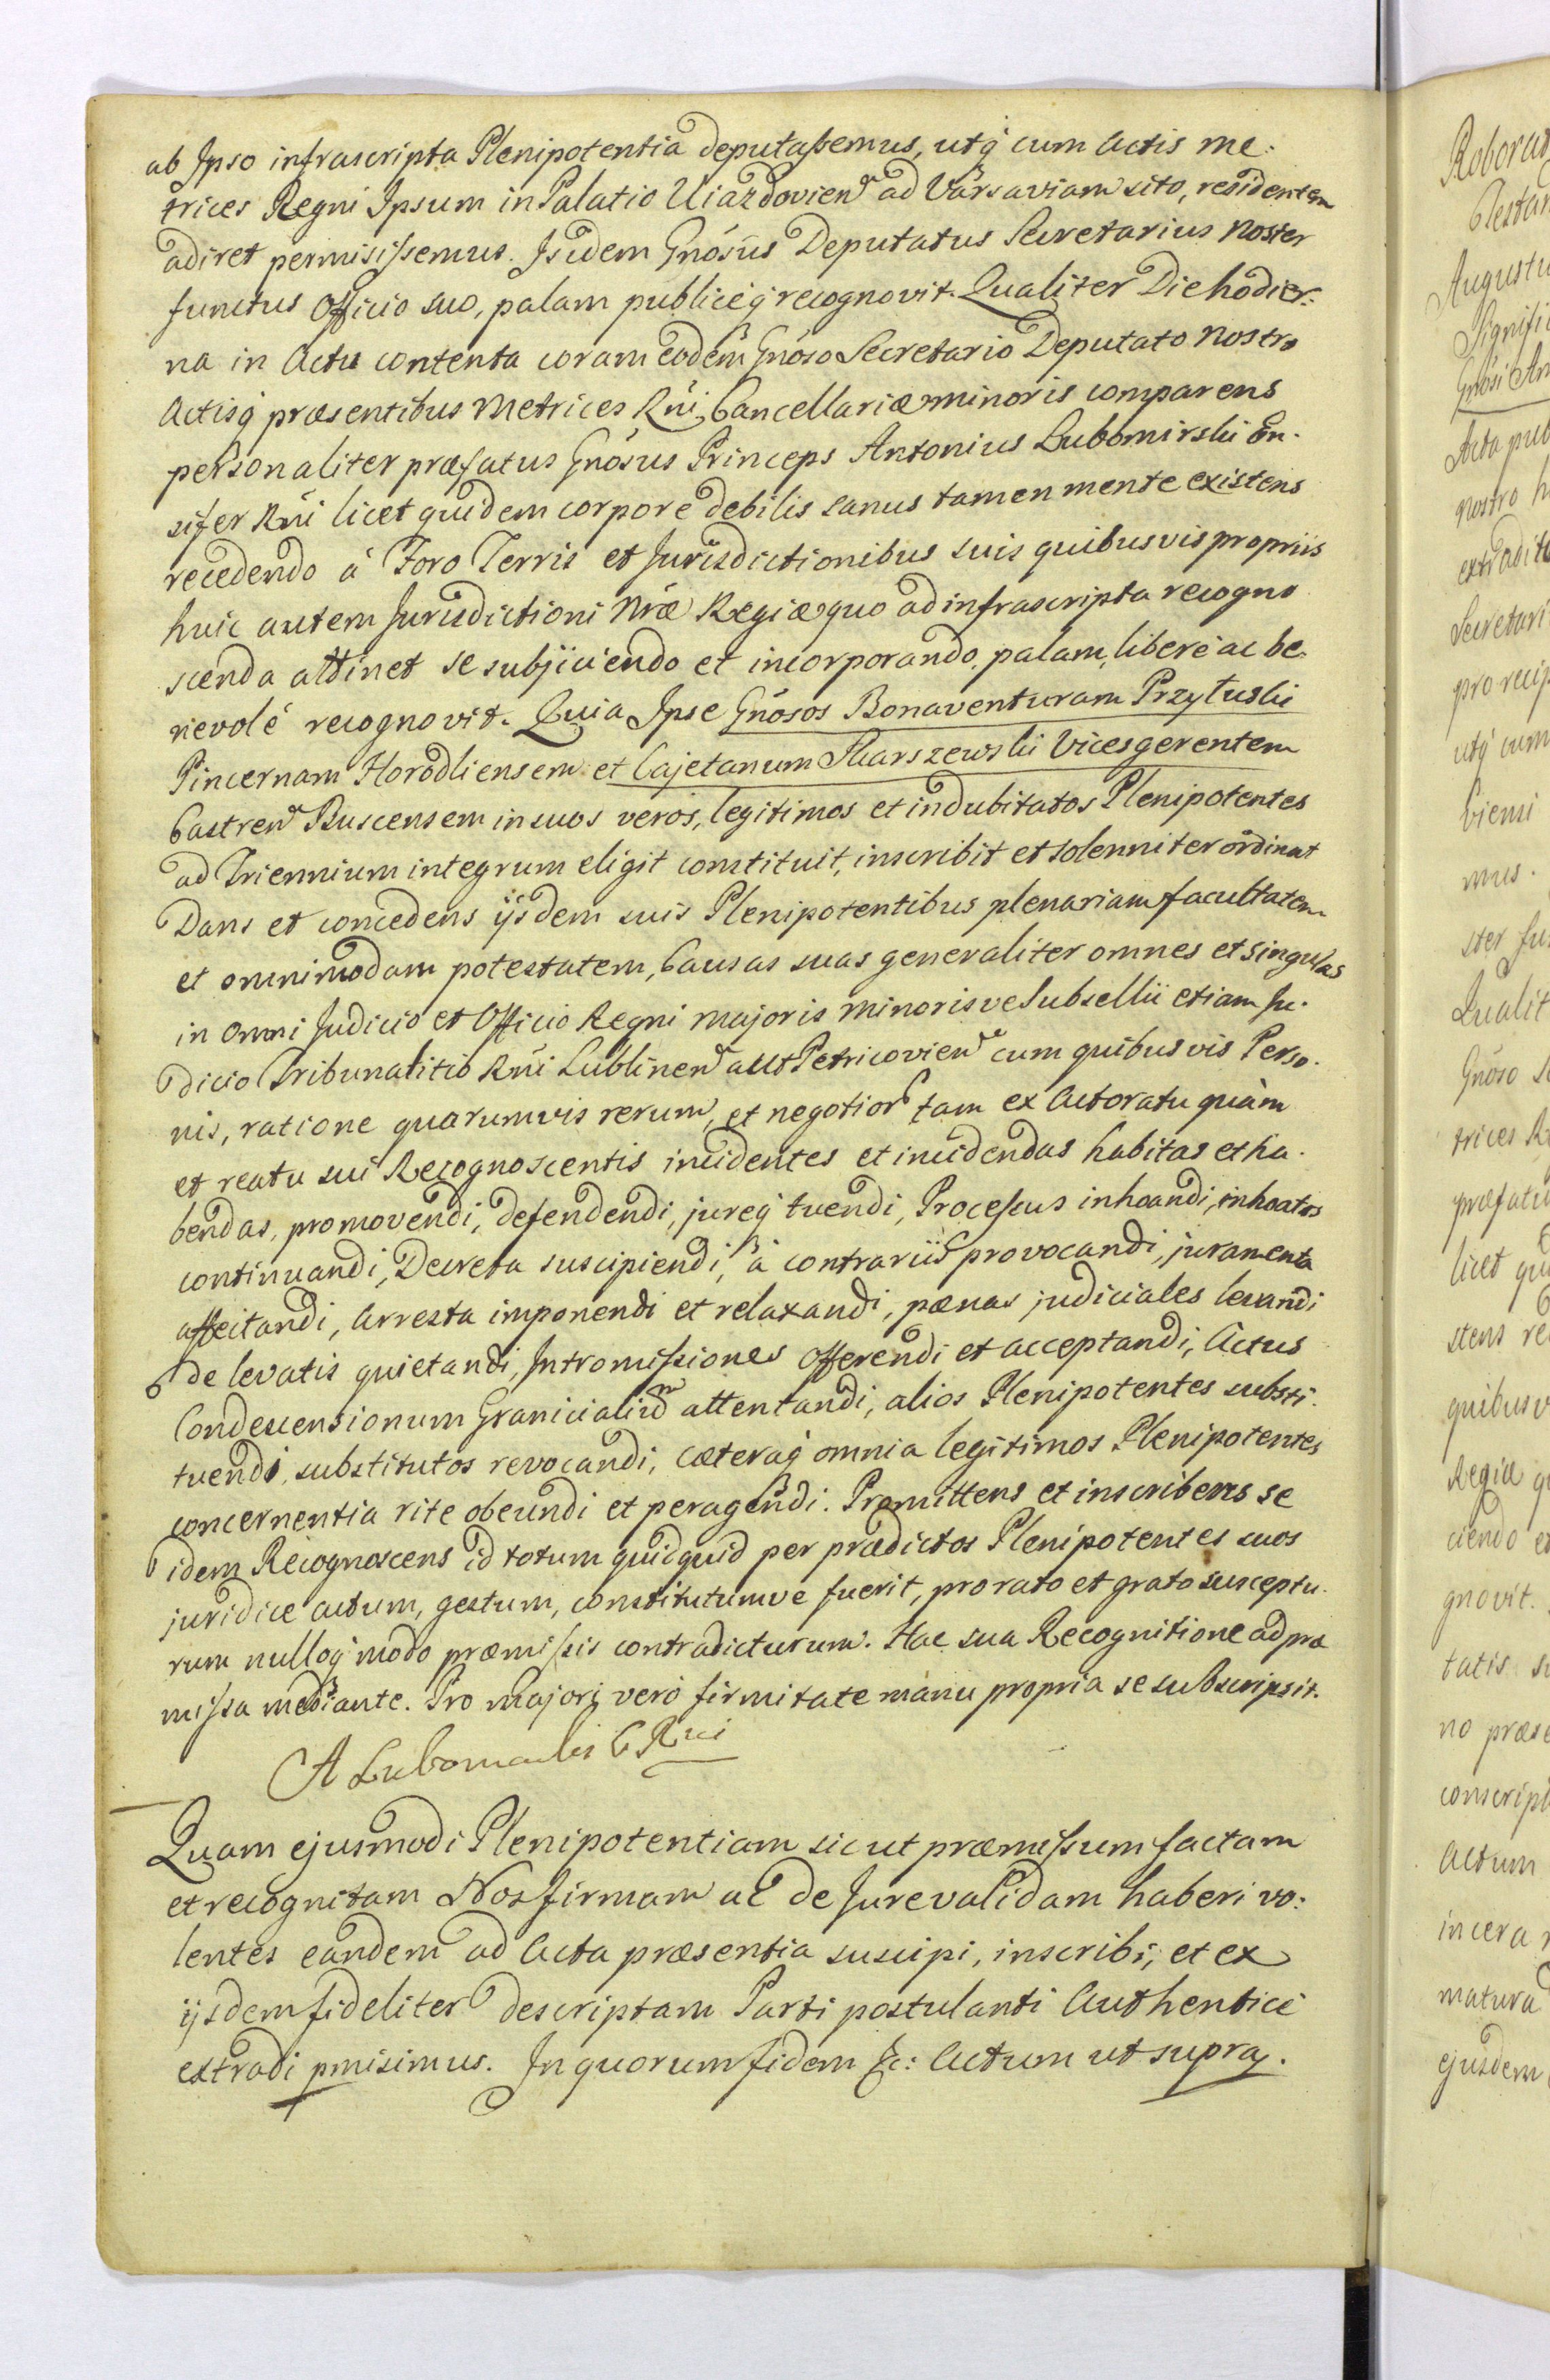 ab Ipso infrascripta Plenipotentia deputassemus, utq́ cum Actis Me:
trices Regni Ipsum in Palatio Uiazdovien ad Varsaviam sito, residentem
adiret permisissemus. Isidem Gnósus Deputatus Secretarius Noster
functus Officio suo, palam publiceq́ recognovit. Qualiter Die hodier:
na in Actu contenta coram eodem Gnóso Secretario Deputato Nostro
Actisq́ præsentibus Metrices Rńi Cancellariæ minoris comparens
personaliter præfatus Gnósus Princeps Antonius Lubomirski En.
sifer Rńi licet quidem corpore debilis sanus tamen mente existens
recedendo á Foro Terris et Jurisdictionibus suis quibusvis propriis
huic autem Jurisdictioni Nrӕ Regiæ quo ad infrascripta recogno
scenda attinet se subjiciendo et incorporando, palam, liberé ac be
nevolé recognovit. Quia Ipse Gnósos Bonaventuram Przyłuski
Pincernam Horodliensem et Cajetanum Skarszewski Vicesgerentem
Castren Buscensem in suos veros, legitimos et indubitatos Plenipotentes
ad Triennium integrum eligit constituit, inscribit et solenniter ordinat
Dans et concedens ijsdem suis Plenipotentibus plenariam facultatem
et omnimodam potestatem, Causas suas generaliter omnes et singulas
in omni Judicio et Officio Regni majoris minorisve Subsellii etiam Ju.
dicio Tribunalitio Rńi Lublinen aut Petricovien cum quibusvis Perso.
nis, ratione quarumvis rerum, et negotior tam ex Actoratu quàm
et reatu sui Recognoscentis incidentes et incidendas habitas et ha.
bendas, promovendi, defendendi, jureq́ tuendi, Processus inhoandi, inhoatos
continuandi, Decreta suscipiendi, á contrariis provocandi, juramenta
affectandi, Arresta imponendi et relaxandi, pænas judiciales levandi
de levatis quietandi, Intromissiones offerendi et acceptandi, Actus
Condescensionum Granicialium attentandi, alios Plenipotentes substi.
tuendi, substitutos revocandi, cæteraq́ omnia legitimos Plenipotentes
concernentia rite obeundi et peragendi. Promittens et inscribens se
idem Recognoscens id totum quidquid per prædictos Plenipotentes suos
juridice actum, gestum, constitutumve fuerit, pro rato et grato susceptu.
rum nulloq́ modo præmissis contradicturum. Hac sua Recognitione ad præ
missa mediante. Pro majori veró firmitate manu propria se subscripsit.
A Lubomirski E Rni
Quam ejusmodi Plenipotentiam sicut præmissum factam
et recognitam Nos firmam ac de Jure validam haberi vo:
lentes eandem ad Acta præsentia suscipi, inscribi, et ex
ijsdem fideliter descriptam Parti postulanti Authenticé
extradi pmisimus. In quorum fidem &c: Actum ut supra.
Augustu
Signifi
Gnósi An
Acta pub
nostro h
extradit
Secretari
pro recip
utq́ cum
mus.
ster fu
Qualit
Gnóso S
trices R
præfatu
licet qu
stens re
quibusv
Regiæ q
ciendo et
gnovit.
tatis su
no præse
conscript
Actum
in cera
matura
ejusdem